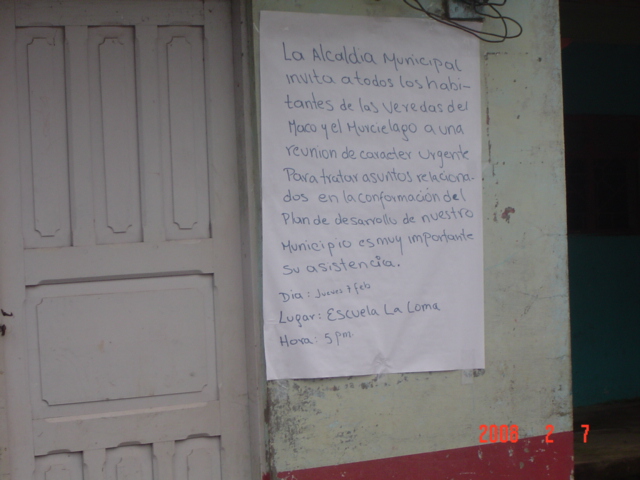 La Alcaldia Municipal
invita a todos los habi-
tantes de las veredas del
Maco y el Murcielago a una
reunion de caracter urgente
Para tratar asuntos relaciona-
dos en la conformación del
Plan de desarrollo de nuestro
Municipio es muy importante
su asistencia.
Dia: Jueves 7 feb
Lugar: Escuela La Loma
Hora: 5 pm.
2008 2 7